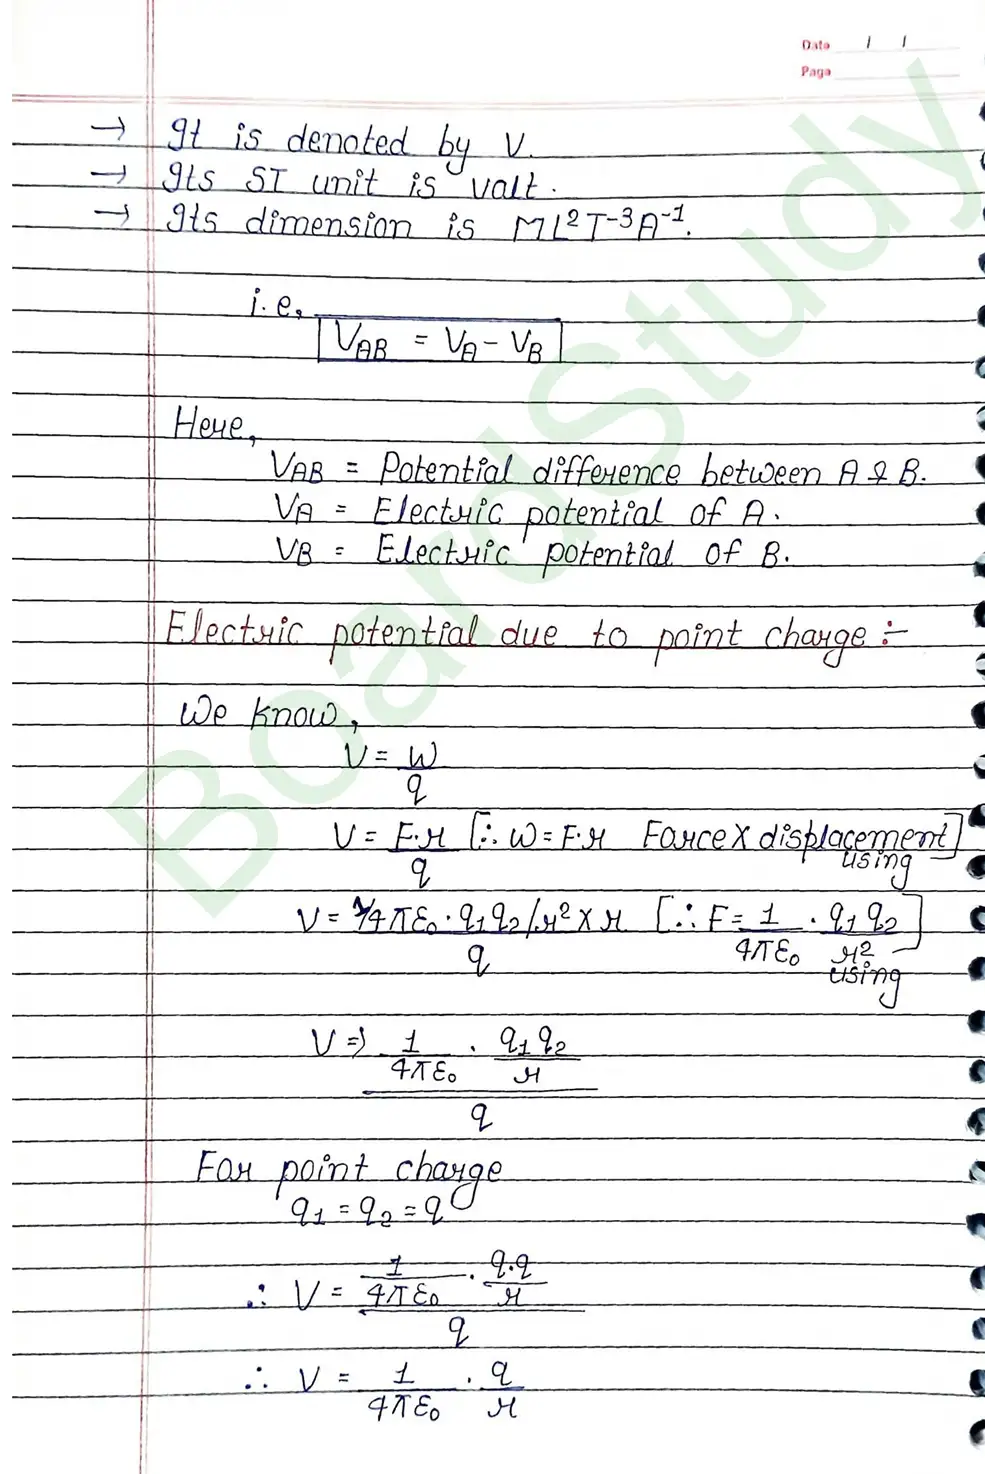 Date / /
Page
→ It is denoted by V.
→ Its SI unit is valt.
→ Its dimension is ML²T⁻³A⁻¹.
i.e,
V_AB = V_A - V_B
Here,
V_AB = Potential difference between A & B.
V_A = Electric potential of A.
V_B = Electric potential of B.
Electric potential due to point charge :-
We know,
V = W/q
V = F.r/q [∴ W = F.r Force X displacement]
using
V = 1/4πε₀ · q₁q₂/r² × r / q [∴ F = 1/4πε₀ · q₁q₂/r²]
using
V ⇒ 1/4πε₀ · q₁q₂/r / q
For point charge
q₁ = q₂ = q
∴ V = 1/4πε₀ · q.q/r / q
∴ V = 1/4πε₀ · q/r
BoardStudy